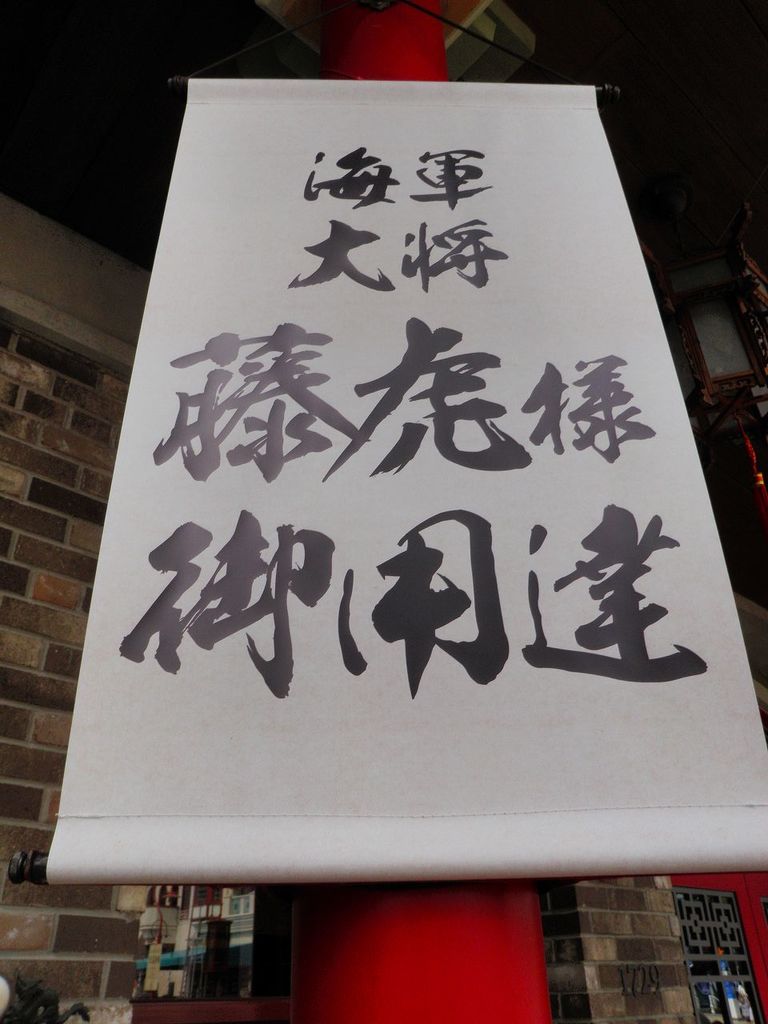 海軍
大将
藤虎様
御用達
1729